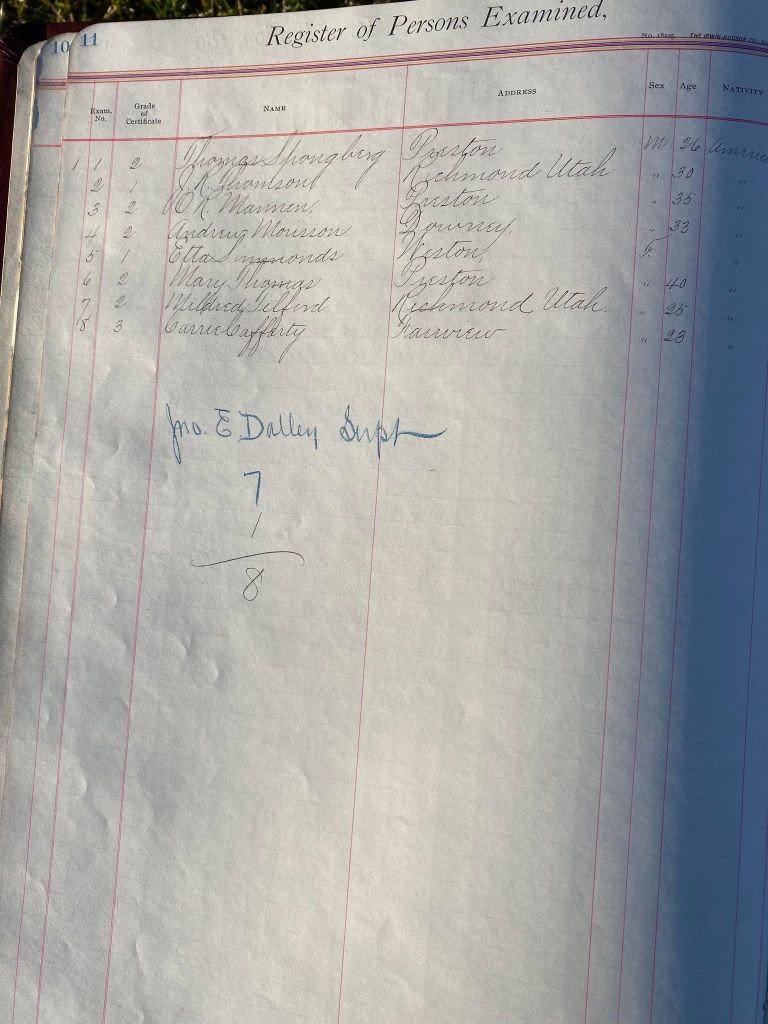 10 11 Register of Persons Examined,
No. 18225. THE IRWIN-HODSON CO.
Exam. No. Grade of Certificate NAME ADDRESS Sex Age NATIVITY
1 1 2 Thomas Spongberg Preston M 26 America
2 1 J.R. Thomson Richmond Utah " 30 "
3 2 O.R. Mannen. Preston " 35 "
4 2 Andrew Morisson Downey. " 33 "
5 1 Etta Simmonds Weston, F. "
6 2 Mary Thomas Preston " 40 "
7 2 Mildred Telford Richmond Utah. " 25 "
8 3 Carrie Cafferty Fairview " 23 "
Jno. E. Dalley Supt
7
1
8